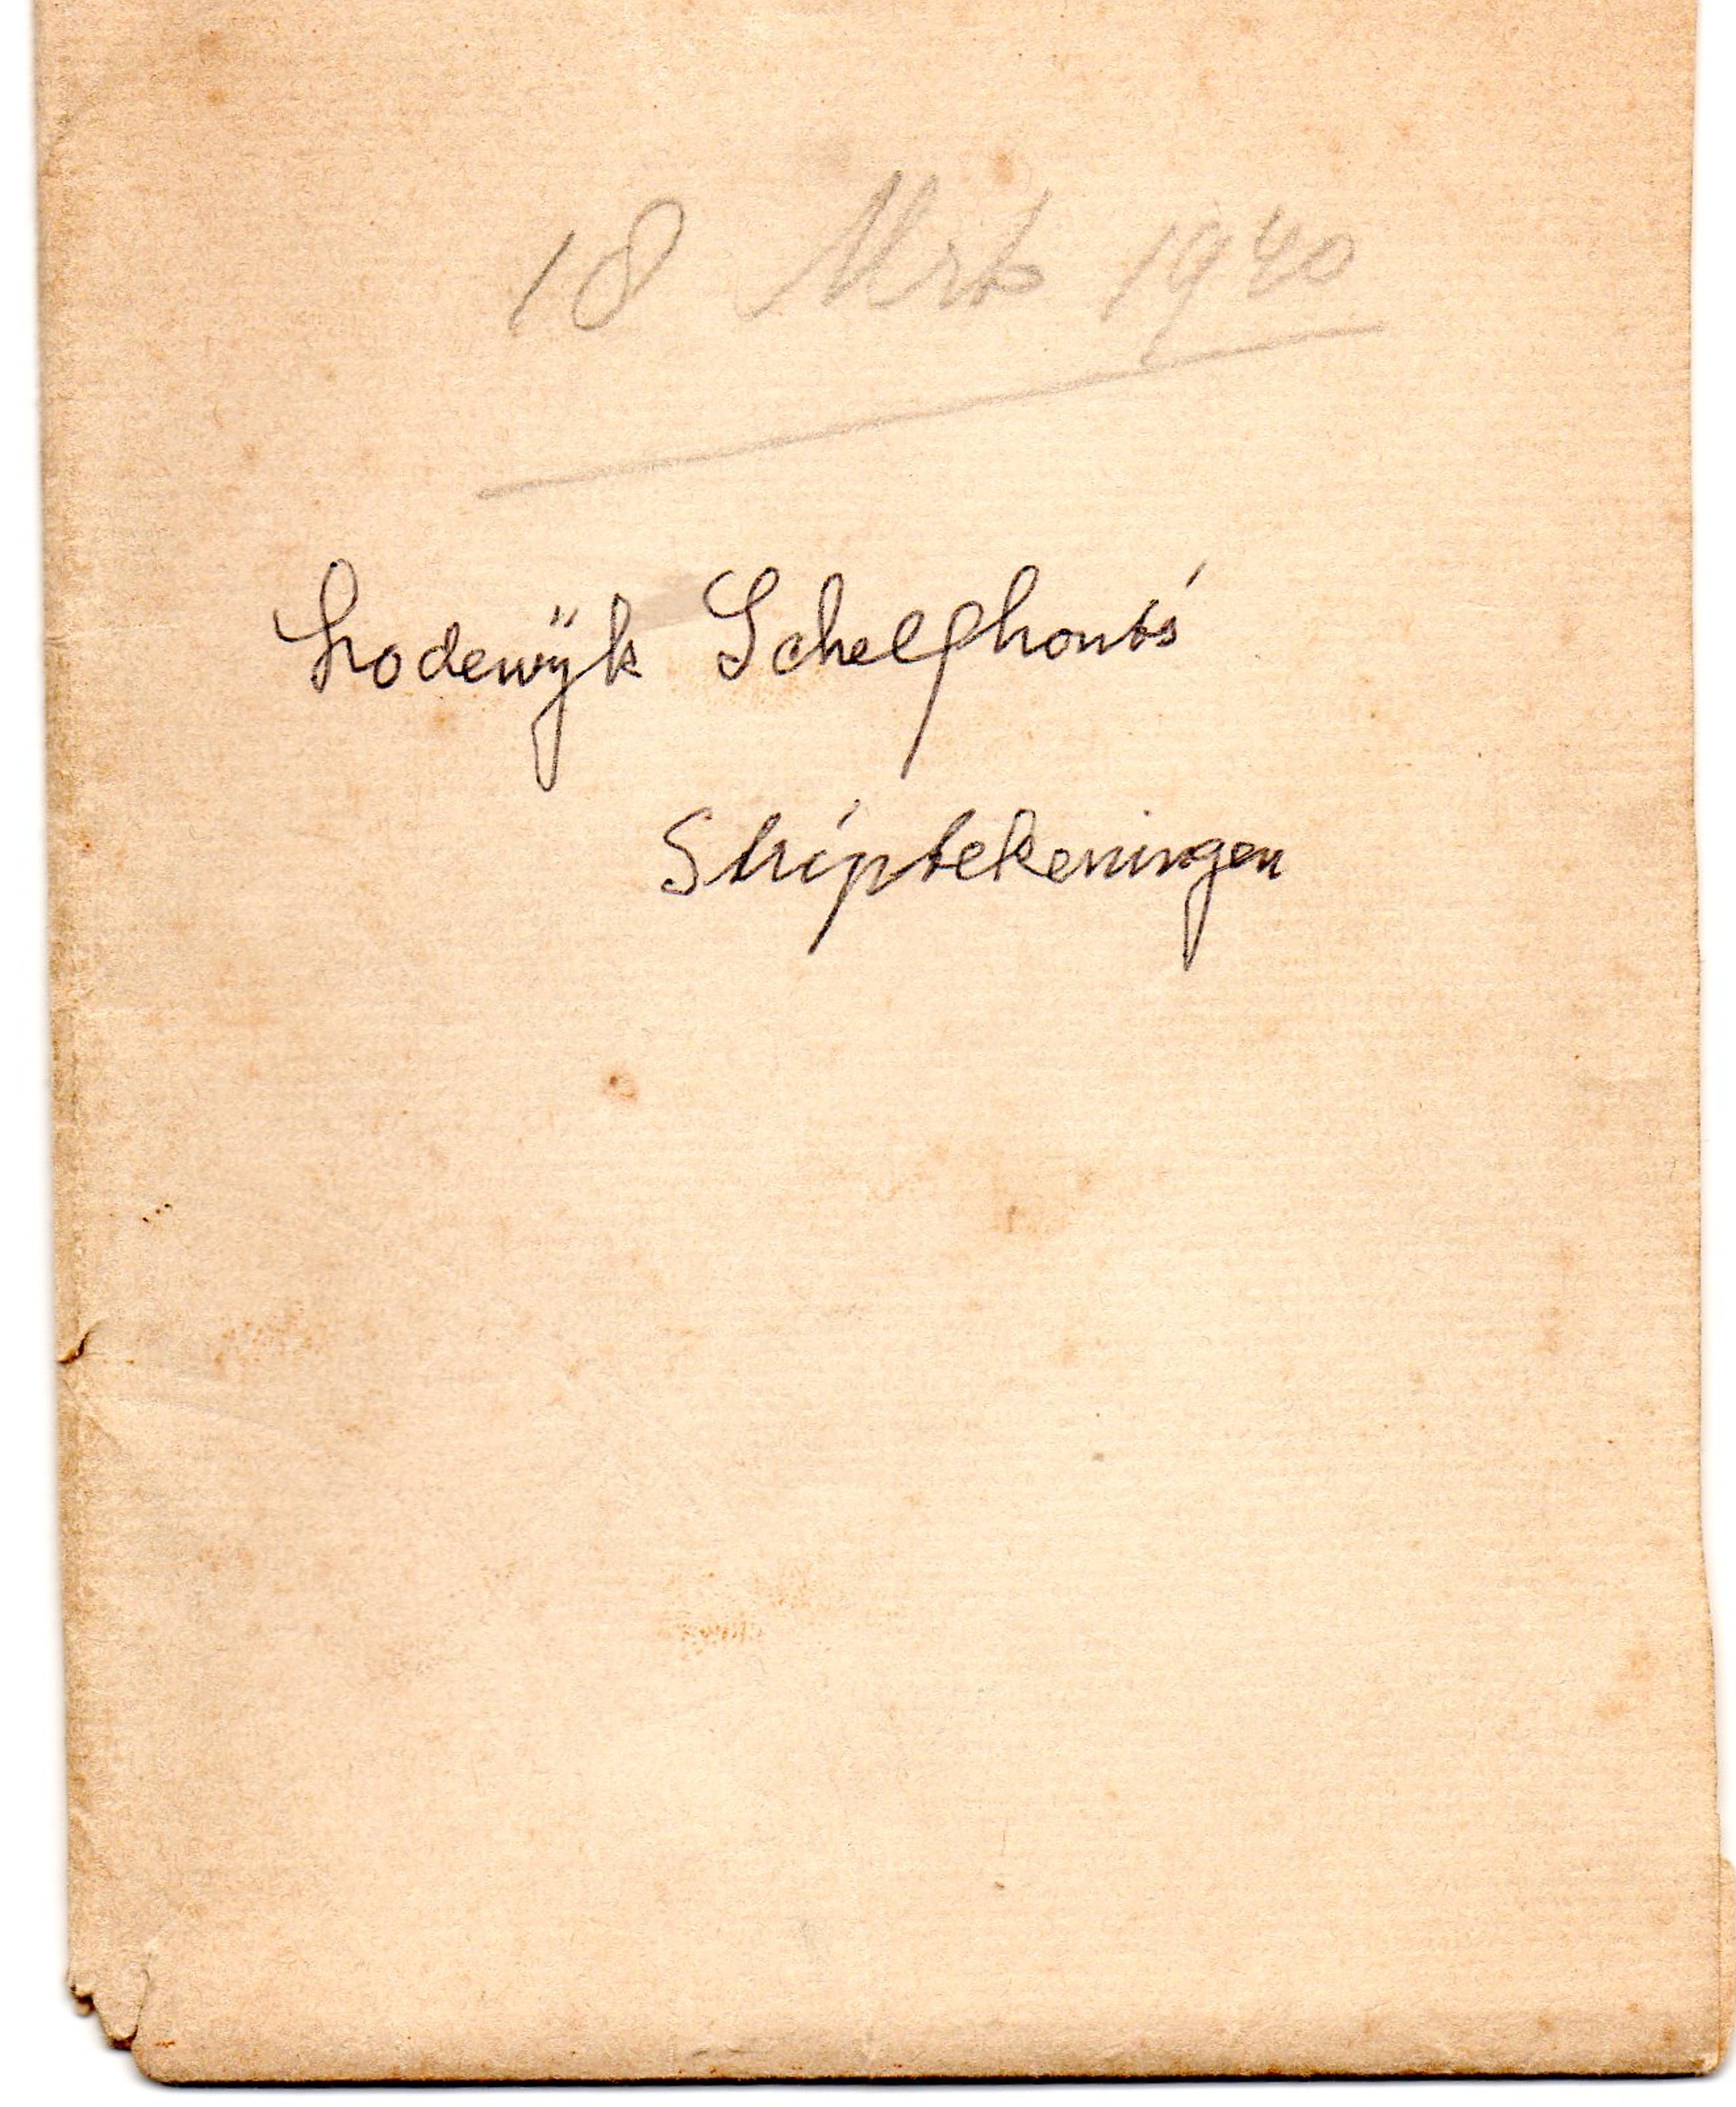 18 Mrt 1940
Lodewijk Schelfhout's
Striptekeningen